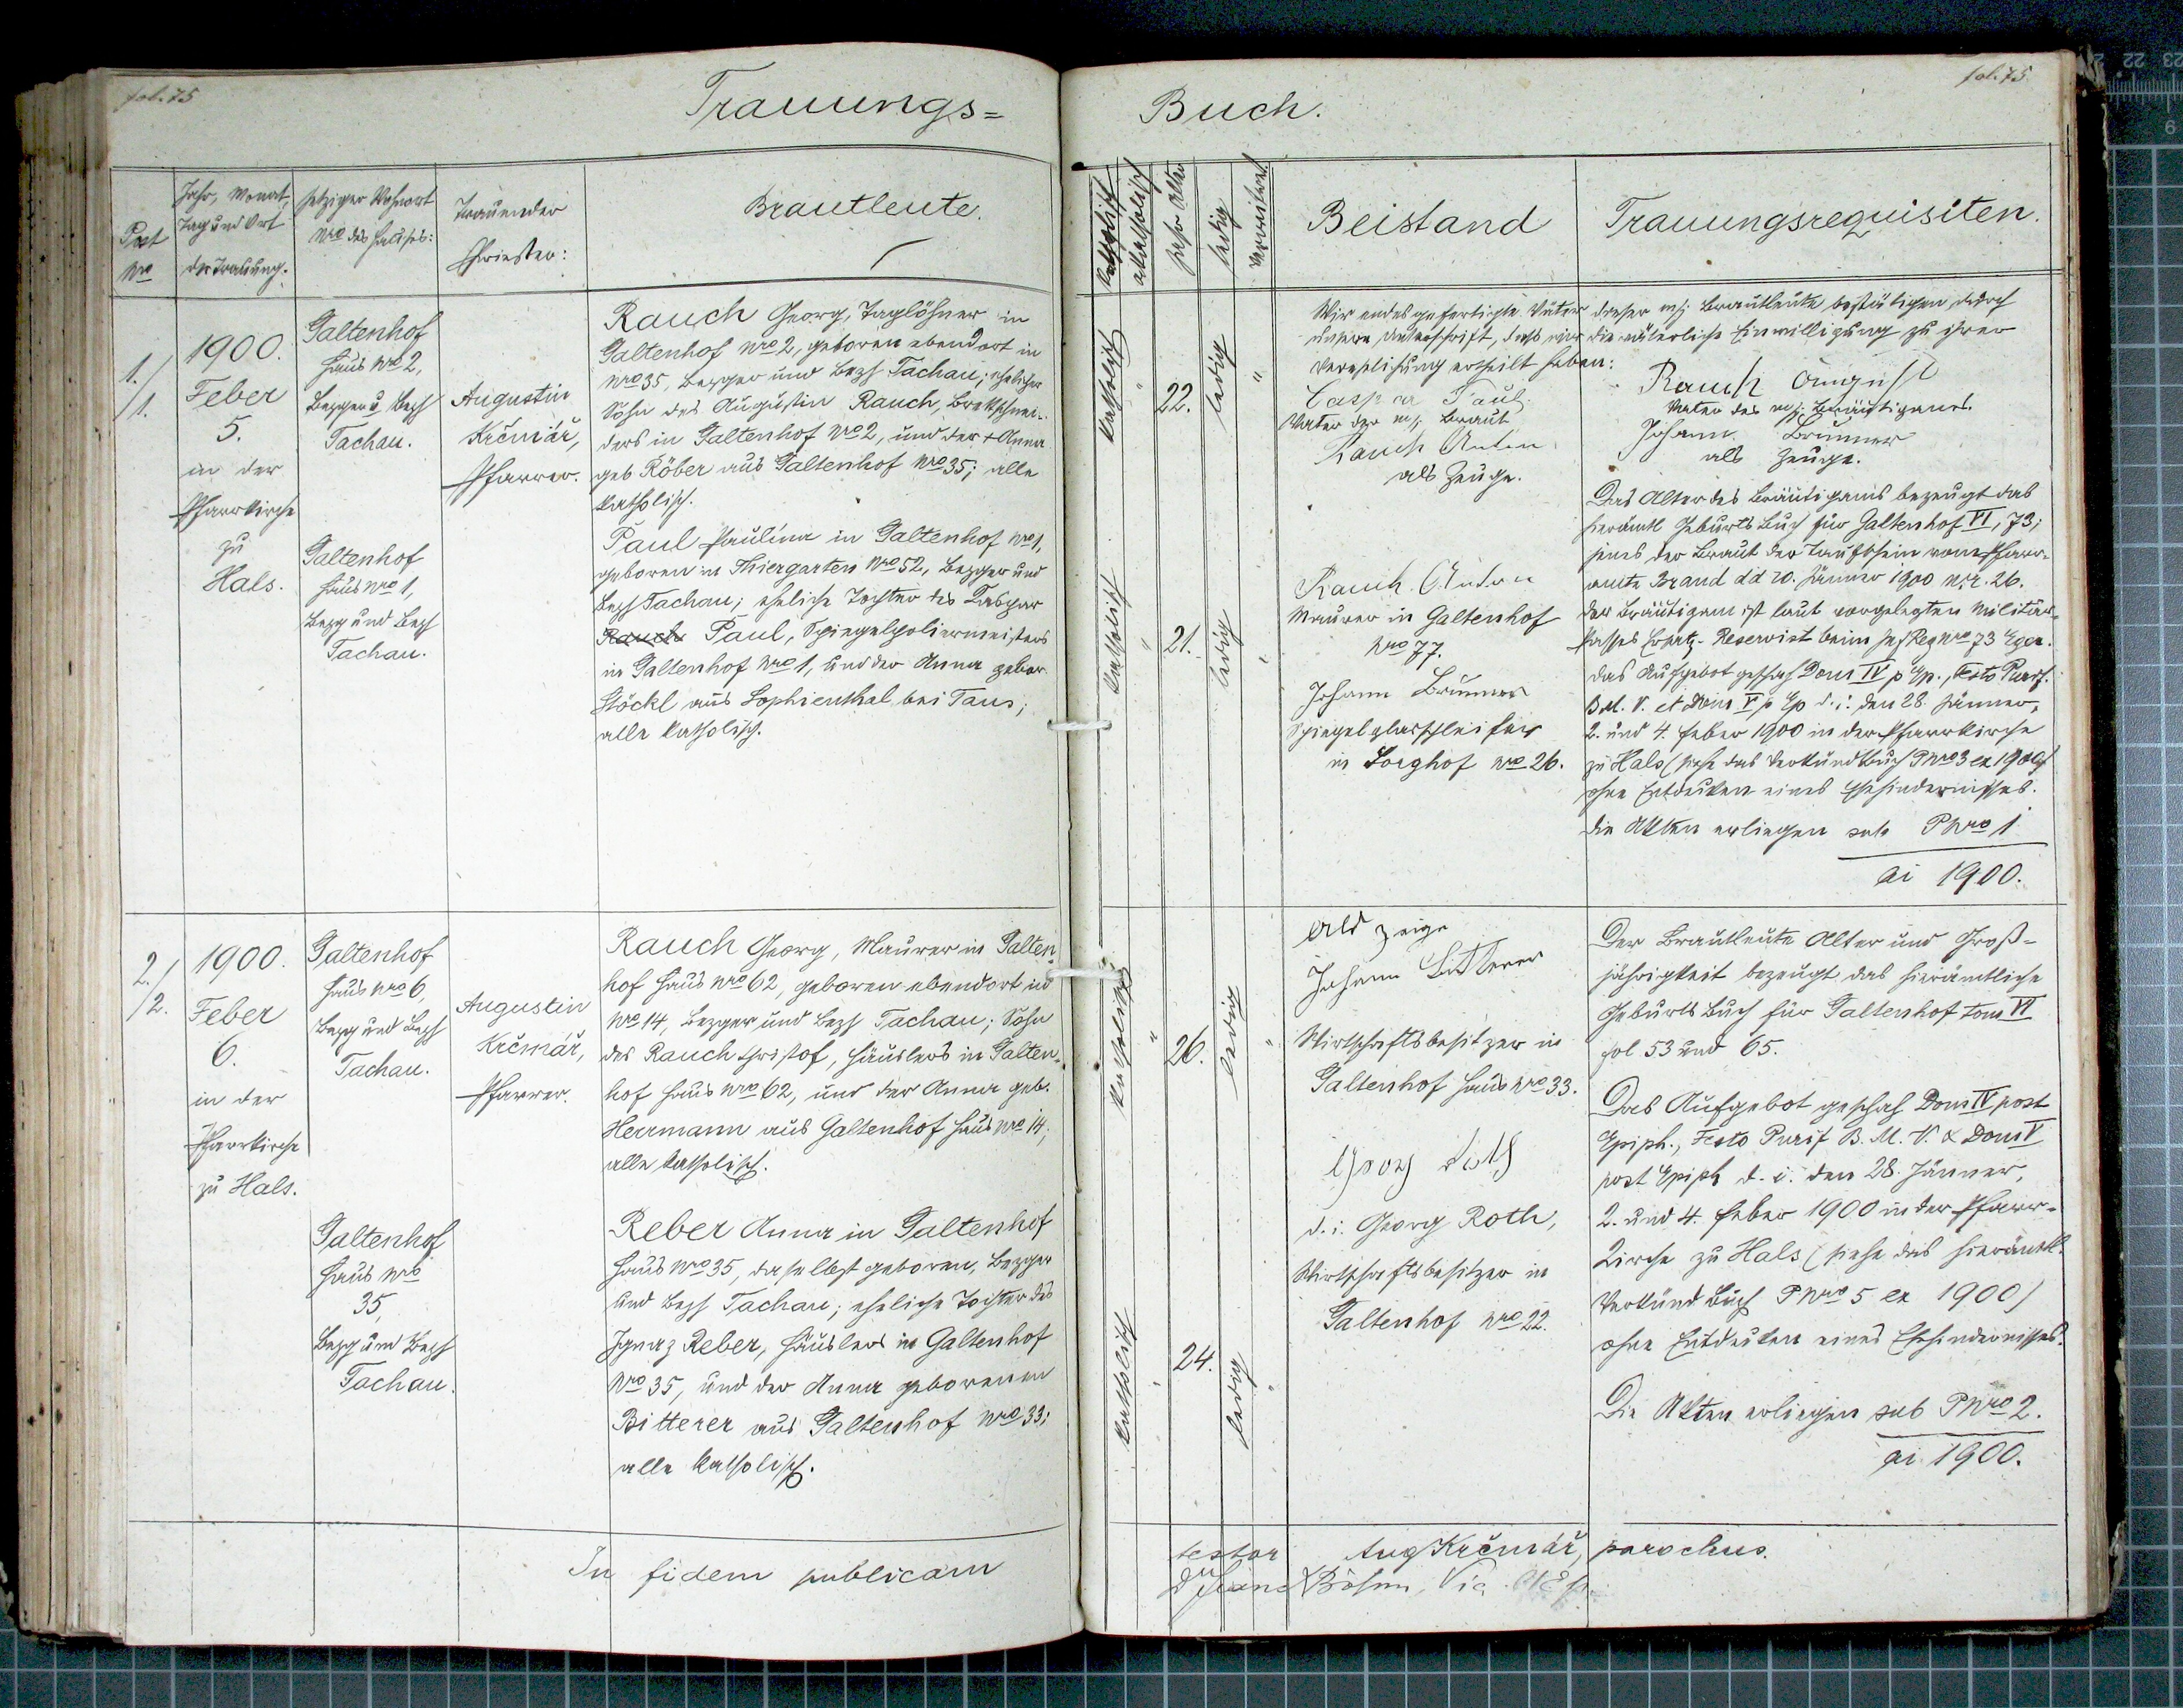 fol. 75
Trauungs=
Post
Nro
Jahr, Monat,
Tag und Ort
der Trauung.
jetziger Wohnort
Nro des Hauses:
Trauender
Priester:
Brautleute.
1./
/1.
1900.
Feber
5.
in der
Pfarrkirche
zu
Hals.
Galtenhof
Haus Nro 2,
Bezger u Bezh
Tachau.
Augustin
Krčmář,
Pfarrer.
Rauch Georg, Taglöhner in
Galtenhof Nro 2, geboren ebendort in
Nro 35, Bezger und Bezh Tachau; ehelicher
Sohn des Augustin Rauch, Brettschnei-
ders in Galtenhof Nro 2, und der + Anna
geb Röber aus Galtenhof Nro 35; alle
katholisch.
Galtenhof
Haus Nro 1,
Bezg und Bezh
Tachau.
Paul Paulina in Galtenhof Nro 1,
geboren in Thiergarten Nro 52, Bezger und
Bezh Tachau; eheliche Tochter des Kaspar
Rauch Paul, Spiegelpoliermeisters
in Galtenhof Nro 1, und der Anna gebor.
Stöckl aus Sophienthal bei Taus;
alle katholisch.
2./
/2.
1900.
Feber
6.
in der
Pfarrkirche
zu Hals.
Galtenhof
Haus Nro 6,
Bezg und Bezh
Tachau.
Augustin
Krčmář,
Pfarrer.
Rauch Georg, Maurer in Galten-
hof Haus Nro 62, geboren ebendort in
Nro 14, Bezger und Bezh Tachau; Sohn
des Rauch Christof, Häuslers in Galten-
hof Haus Nro 62, und der Anna geb.
Herrmann aus Galtenhof Haus Nro 14;
alle katholisch.
Galtenhof
Haus Nro
35,
Bezg und Bezh
Tachau.
Reber Anna in Galtenhof
Haus Nro 35, daselbst geboren, Bezger
und Bezh Tachau; eheliche Tochter des
Ignaz Reber, Häuslers in Galtenhof
Nro 35, und der Anna geborenen
Bitterer aus Galtenhof Nro 33;
alle katholisch.
In fidem publicam
fol. 75.
Buch.
katholisch
akatholisch
Jahr Alter
ledig
verwitwet
Beistand
Trauungsrequisiten.
Wir endesgefertigte Väter dieser mj. Brautleute bestätigen durch
unsere Unterschrift, daß wir die väterliche Einwilligung zu ihrer
Verehelichung ertheilt haben:
katholisch
"
22.
ledig
"
Caspar Paul
Vater der mj. Braut
Rauch Anton
als Zeuge.
Rauch August
Vater des mj. Bräutigams.
Johann Brunner
als Zeuge.
Das Alter des Bräutigams bezeugt das
hierämtl Geburts Buch für Galtenhof VI, 73;
jenes der Braut der Taufschein vom Pfarr-
amte Brand dd 20. Jänner 1900 N.E. 26.
Der Bräutigam ist laut vorgelegten Militär-
passes Ersatz-Reservist beim Inf Reg Nro 73 Eger.
Das Aufgebot geschah Dom IV p Ep., Festo Purif.
B.M.V. et Dom V p Ep d.i. den 28. Jänner,
2. und 4. Feber 1900 in der Pfarrkirche
zu Hals (siehe das Verkündbuch PNro 3 ex 1900)
ohne Entdecken eines Ehehindernisses.
Die Akten erliegen sub PNro 1
ai 1900.
katholisch
"
21.
ledig
"
Rauch Anton
Maurer in Galtenhof
Nro 77.
Johann Brunner
Spiegelglasschleifer
in Sorghof Nro 26.
katholisch
"
26.
ledig
"
als Zeige
Johann Bitterer
Wirtschaftsbesitzer in
Galtenhof Haus Nro 33.
Georg Roth
d.i. Georg Roth,
Wirtschaftsbesitzer in
Galtenhof Nro 22.
katholisch
"
24.
ledig
"
Der Brautleute Alter und Groß-
jährigkeit bezeugt das hierämtliche
Geburts Buch für Galtenhof tom VI
fol 53 und 65.
Das Aufgebot geschah Dom IV post
Epiph., Festo Purif B.M.V. & Dom V
post Epiph d.i. den 28. Jänner,
2. und 4. Feber 1900 in der Pfarr-
kirche zu Hals (siehe das hierämtl.
Verkünd Buch PNro 5 ex 1900)
ohne Entdecken eines Ehehindernisses.
Die Akten erliegen sub PNro 2.
ai 1900.
testor Aug Krčmář, parochus.
Böhm, Vic.